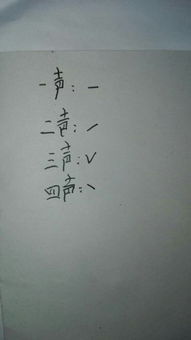 一声：ー
二声：ˊ
三声：ˇ
四声：ˋ